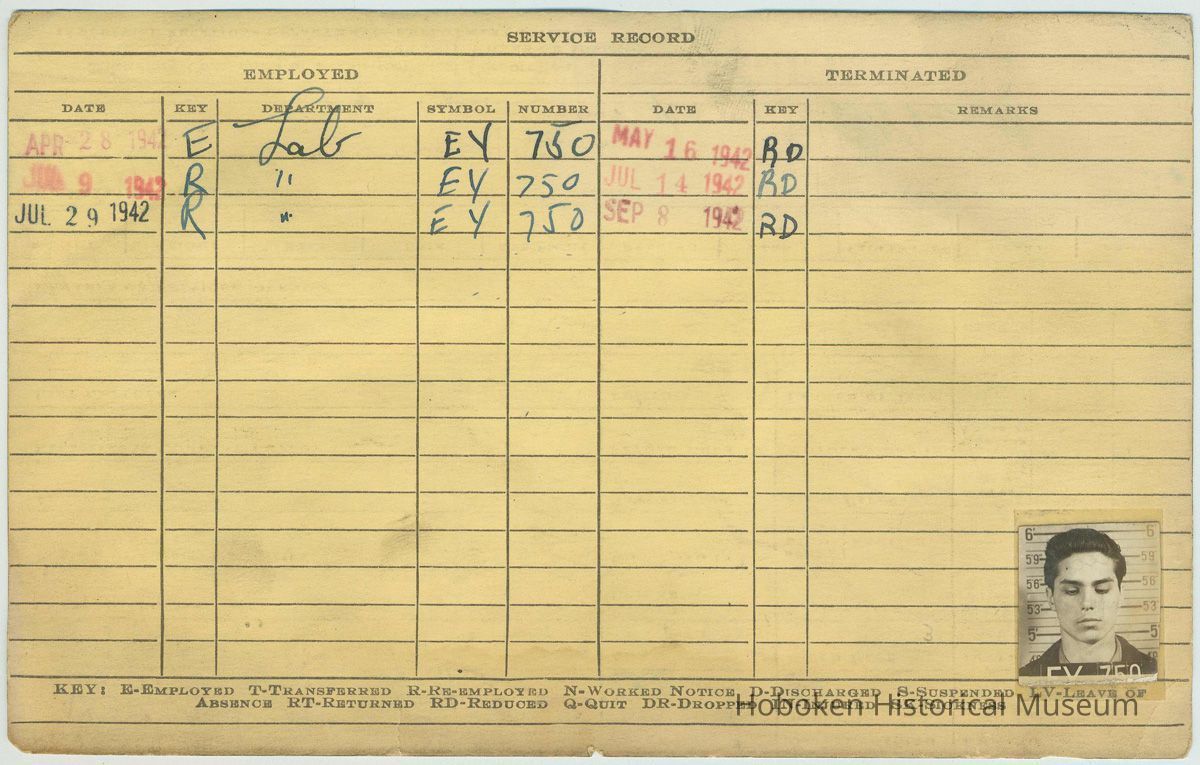 SERVICE RECORD
EMPLOYED TERMINATED
DATE KEY DEPARTMENT SYMBOL NUMBER DATE KEY REMARKS
APR 28 1942 E Lab EY 750 MAY 16 1942 RD
9 1942 R " EY 750 JUL 14 1942 RD
JUL 29 1942 R " EY 750 SEP 8 1942 RD
6' 6
59 59
56 56
53 53
5' 5
EY 750
KEY: E-EMPLOYED T-TRANSFERRED R-RE-EMPLOYED N-WORKED NOTICE D-DISCHARGED S-SUSPENDED LV-LEAVE OF
ABSENCE RT-RETURNED RD-REDUCED Q-QUIT DR-DROPPED IN-INJURED SK-SICKNESS
Hoboken Historical Museum